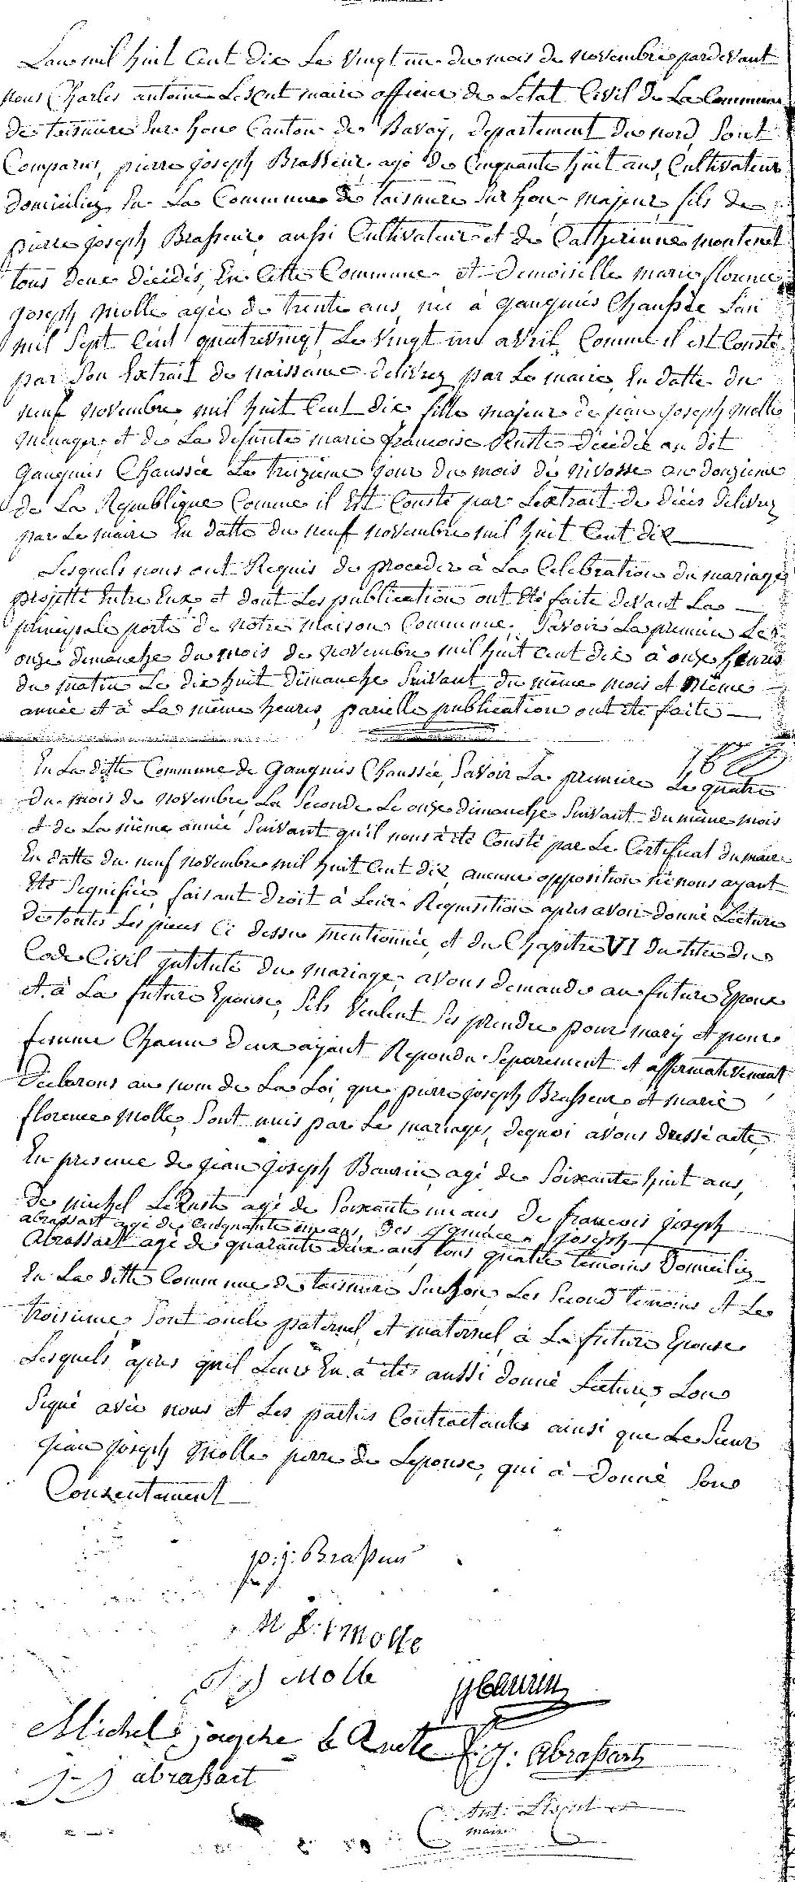 Lan mil huit cent dix Le vingt un du mois de novembre pardevant
nous Charles antoine Lescut maire officier de Letat Civil de La Commune
de taisniere Sur hon Canton de Bavay, departement du nord, Sont
Comparus, pierre joseph Brasseur agé de Cinquante huit ans, Cultivateur
domiciliez En La Commune de taisniere Sur hon, majeur, fils de
pierre joseph Brasseur, aussi Cultivateur et de Catherinne montenet
tous deux décédés, En Cette Commune et Demoiselle marie florence
joseph molle agée de trente ans, née à gaugnies Chaussée L'an
mil Sept Cent quatrevingt Le vingt un avril, Comme il est Consté
par Son Extrait de naissance delivrez par Le maire, En datte du
neuf novembre mil huit Cent dix fille majeur de jean joseph molle
menager et de La defunte marie francoise Ruste décédée au dit
gaugnies Chaussée Le treizieme jour du mois de nivosse an douzieme
de La Republique Comme il Est Consté par Lextrait de décès delivrez
par Le maire En datte du neuf novembre mil huit Cent dix
Lesquels nous ont Requis de proceder à La Celebration du mariage
projetté Entre Eux, et dont Les publication ont Eté faite devant La
principale porte de notre maison Commune, Savoir La premiere Le
onze dimanche du mois de novembre mil huit cent dix à onze heures
du matin Le dix huit dimanche Suivant du même mois et même
année et à La même heures, parielle publication ont été faite
En La ditte Commune de Gaugnies Chaussée, Savoir La premiere Le quatre
du mois de novembre, La Seconde Le onze dimanche Suivant du même mois
et de La même année Suivant qu'il nous à été Consté par Le Certificat du maire
En datte du neuf novembre mil huit Cent dix, aucune opposition ne nous ayant
Eté Signifiée, faisant droit à Leur Requisition apres avoir donné Lecture
de toutes Les pieces Ci dessu mentionnée, et du Chapitre VI du titre du
Code Civil jntitulé du mariage, avons demandé au future Epoux
et à La future Epouse, Sils Veulent Se prendre pour mary et pour
femme Chacun d'eux ayant Repondu Separement et affirmativement
Declarons au nom de La Loi, que pierre joseph Brasseur et marie
florence molle, Sont unis par Le mariage, dequoi avons dressé acte,
En presence de jean joseph Baurin, agé de Soixante huit ans,
De michel LeRuste agé de Soixante un ans De francois joseph
abrassart agé de Cinquante un ans, Des joseph
Abrassart agé de quarante deux ans, tous quatre temoins Domiciliez
En La ditte Commune de taisniere Sur hon, Les Second temoins et Le
troisieme Sont oncle paternel et maternel à La future Epouse
Lesquels apres quil Leurs En à été aussi donné Lecture, Lon
Signé avec nous et Les parties Contractante ainsi que Le Sieur
jean joseph molle perre de Lepouse, qui à donné Son
Consentement
p: j: Brasseur
M F: j Molle
j j Molle
jj Baurin
Michel josephe le Ruste
f: j: abrassart
j-j abrassart
Ant: Lescut
maire